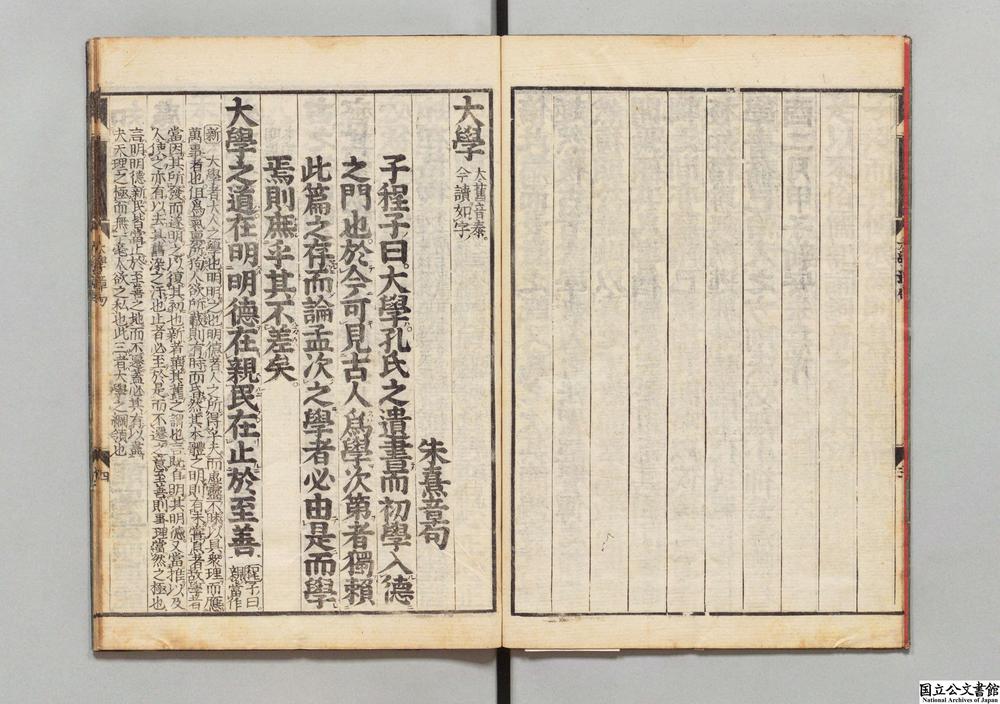 大學
大舊音泰。
今讀如字
朱熹章句
子程子曰。大學。孔氏之遺書而初學入德
之門也。於今可見古人爲學次第者獨賴
此篇之存而論孟次之學者必由是而學
焉則庶乎其不差矣。
大學之道在明明德在親民在止於至善
程子曰
親當作
新 大學者大人之學也明明之也明德者人之所得乎天而虛靈不昧以具衆理而應
萬事者也但爲氣稟所拘人欲所蔽則有時而昏然其本體之明則有未嘗息者故學者
當因其所發而遂明之以復其初也新者革其舊之謂也言既自明其明德又當推以及
人使之亦有以去其舊染之汚也止者必至於是而不遷之意至善則事理當然之極也
言明明德新民皆當止於至善之地而不遷蓋必其有以盡
夫天理之極而無一毫人欲之私也此三者大學之綱領也
四
国立公文書館
National Archives of Japan